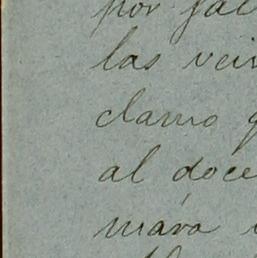 por fal
las vein
clamo q
al doce
mara